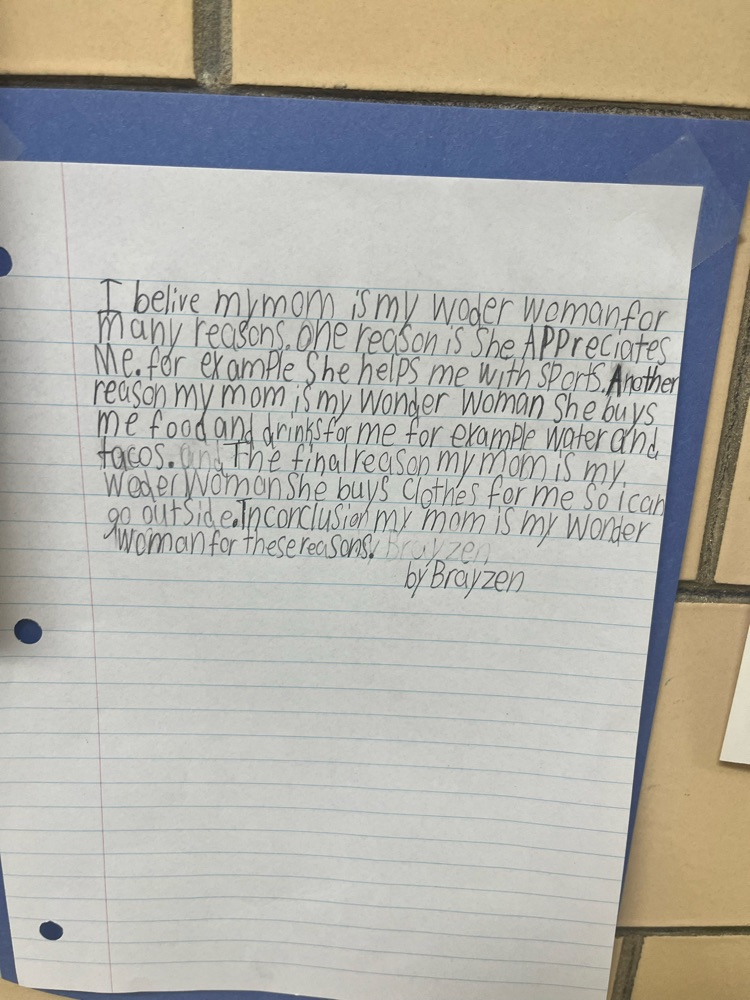 I belive my mom is my woder woman for
many reasons. One reason is She APPreciates
Me. for example She helps me with sports. Another
reason my mom is my wonder woman She buys
me food and drinks for me for example water and
tacos. and The final reason my mom is my
woder Woman She buys clothes for me so i can
go outside. In conclusion my mom is my wonder
woman for these reasons. Brayzen
by Brayzen